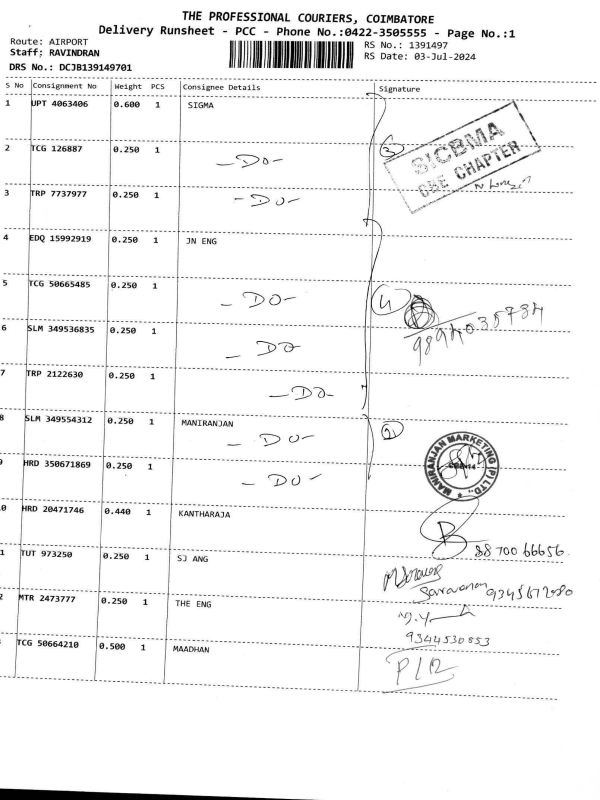 THE PROFESSIONAL COURIERS, COIMBATORE
Delivery Runsheet - PCC - Phone No.:0422-3505555 - Page No.:1
Route: AIRPORT RS No.: 1391497
Staff; RAVINDRAN RS Date: 03-Jul-2024
DRS No.: DCJB139149701
S No Consignment No Weight PCS Consignee Details Signature
1 UPT 4063406 0.600 1 SIGMA
2 TCG 126887 0.250 1 -DO- 3 SICBMA
CBE CHAPTER
3 TRP 7737977 0.250 1 -DO-
4 EDQ 15992919 0.250 1 JN ENG
5 TCG 50665485 0.250 1 -DO- 4
6 SLM 349536835 0.250 1 DO 9894035734
7 TRP 2122630 0.250 1 -DO-
8 SLM 349554312 0.250 1 MANIRANJAN 2
-DO-
MANIRANJAN MARKETING (P) LTD
9 HRD 350671869 0.250 1 -DO-
0 HRD 20471746 0.440 1 KANTHARAJA
88700 66656
1 TUT 973250 0.250 1 SJ ANG
Saravanan
2 MTR 2473777 0.250 1 THE ENG
9344530853
TCG 50664210 0.500 1 MAADHAN